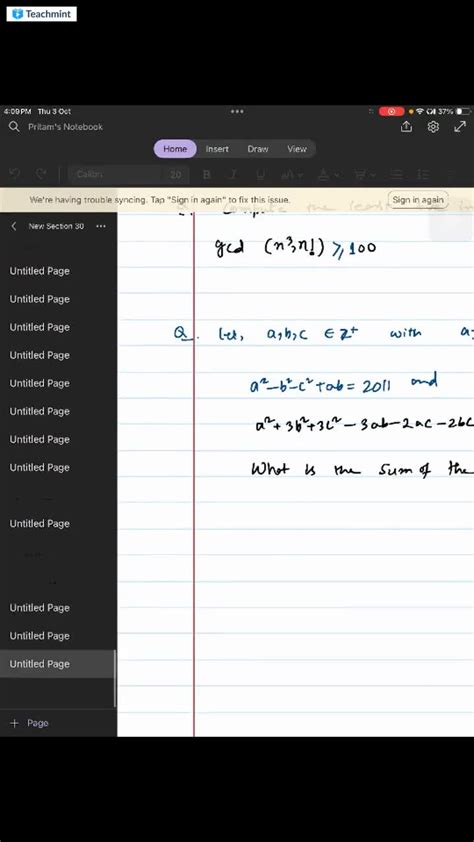 Teachmint
4:09 PM Thu 3 Oct
37%
Pritam's Notebook
Home Insert Draw View
Calibri 20 B I U
We're having trouble syncing. Tap "Sign in again" to fix this issue. Sign in again
New Section 30
compute the least
gcd (n³, n!) ≥ 100
Untitled Page
Untitled Page
Untitled Page
Untitled Page
Untitled Page
Untitled Page
Untitled Page
Untitled Page
Untitled Page
Untitled Page
Untitled Page
Untitled Page
Q. Let, a, b, c ∈ Z⁺ with a
a² - b² - c² + ab = 2011 and
a² + 3b² + 3c² - 3ab - 2ac - 2bc
What is the sum of the
+ Page